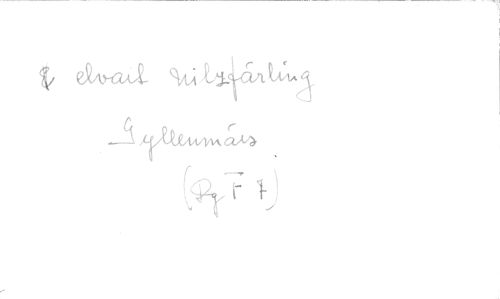 elvait nilzfärling
Gyllenmärs
(Rg F 7)